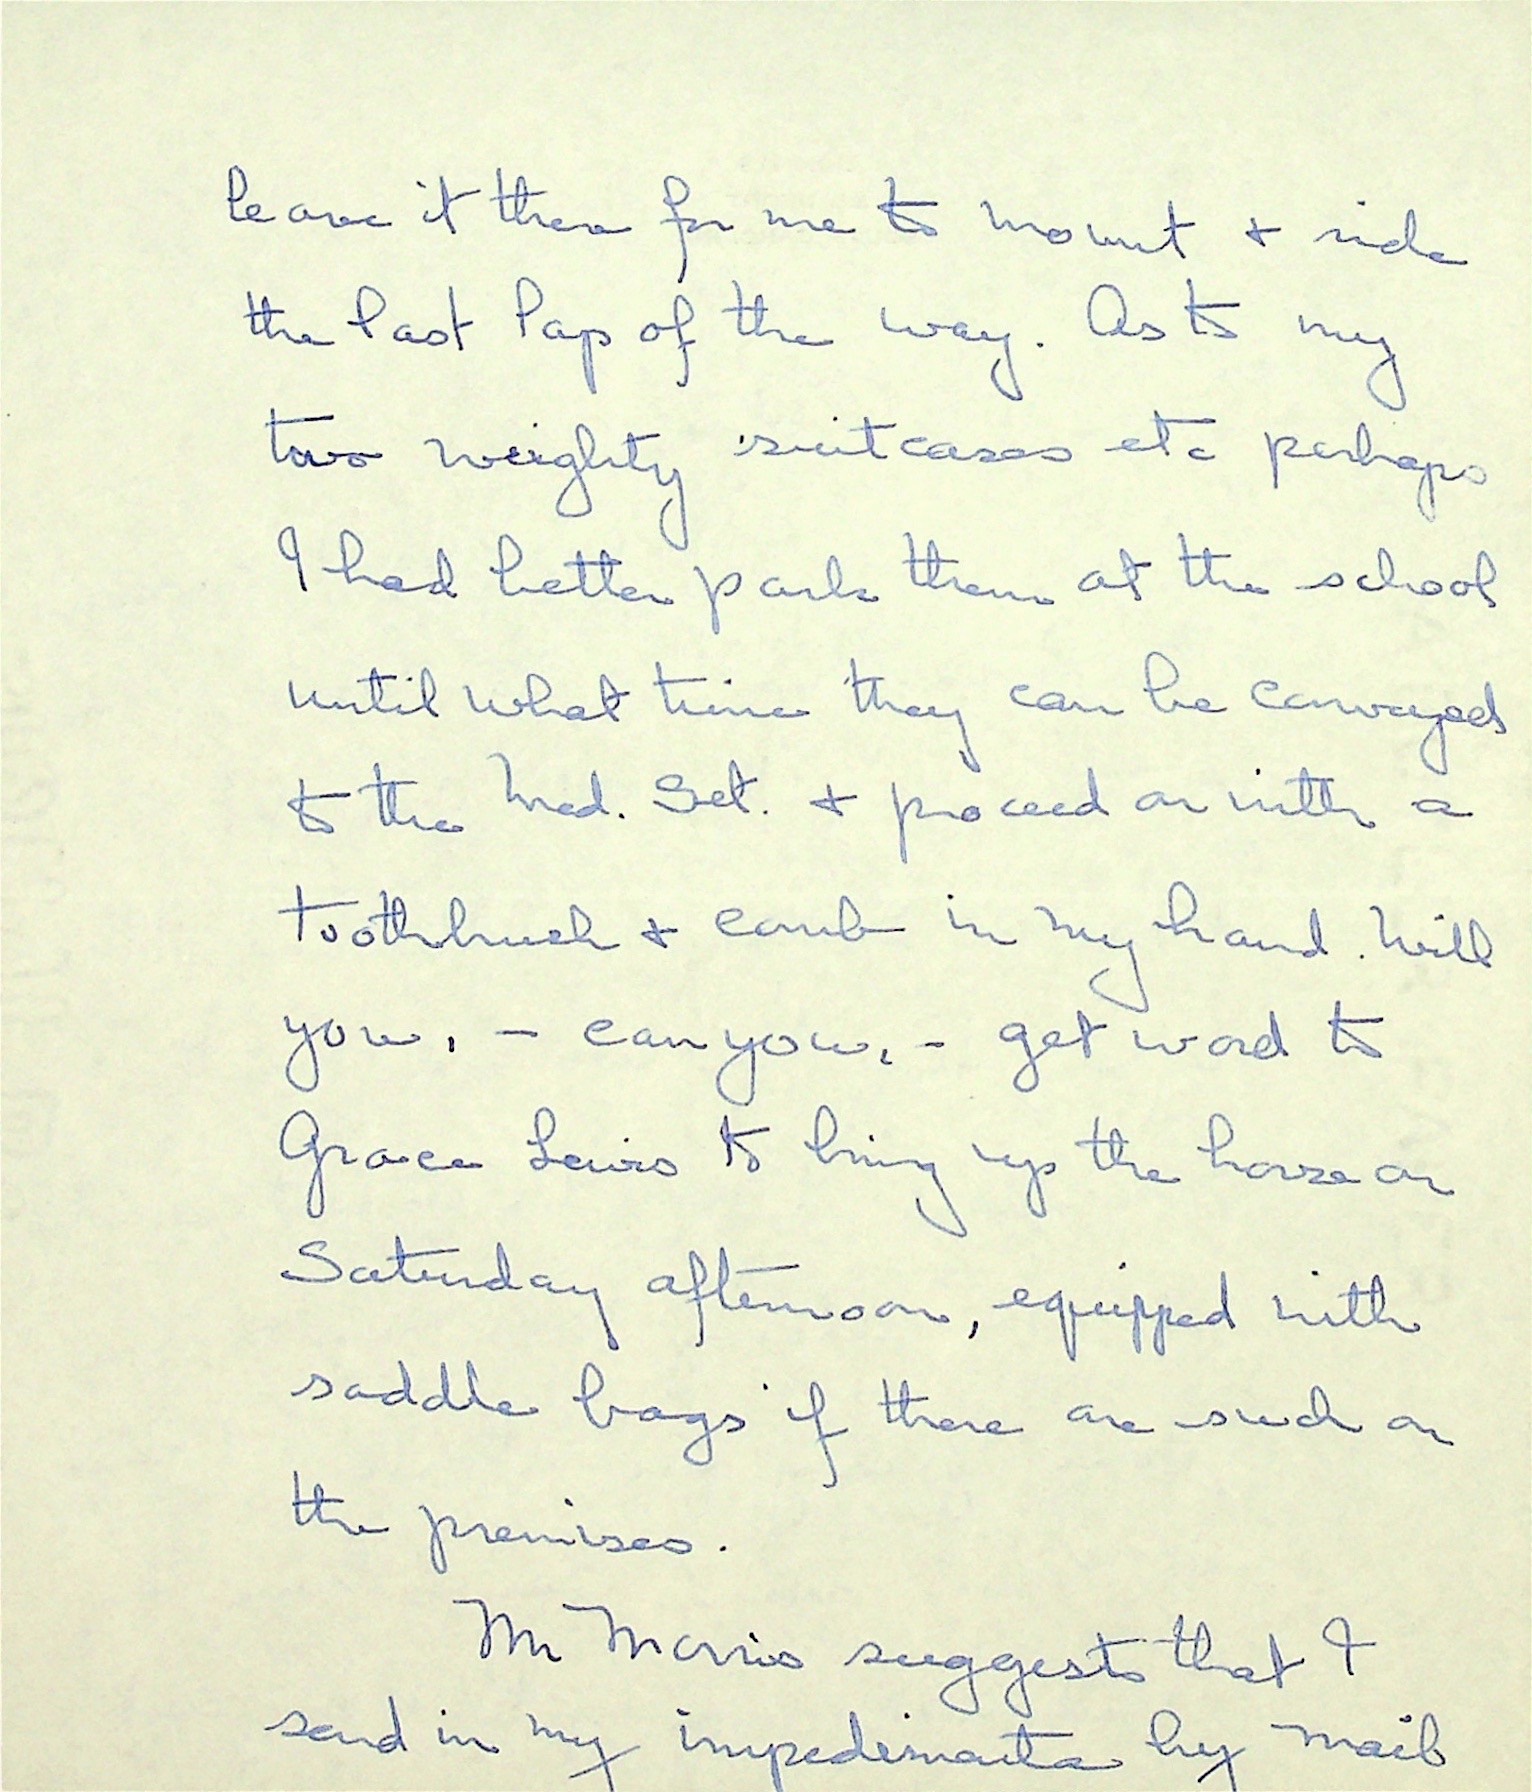 leave it there for me to mount + ride
the last lap of the way. As to my
two weighty suitcases etc perhaps
I had better park them at the school
until what time they can be conveyed
to the Med. Set. + proceed on with a
toothbrush + comb in my hand. Will
you, - can you, - get word to
Grace Lewis to bring up the horse on
Saturday afternoon, equipped with
saddle bags if there are such on
the premises.
Mr Morris suggests that I
send in my impedimenta by mail